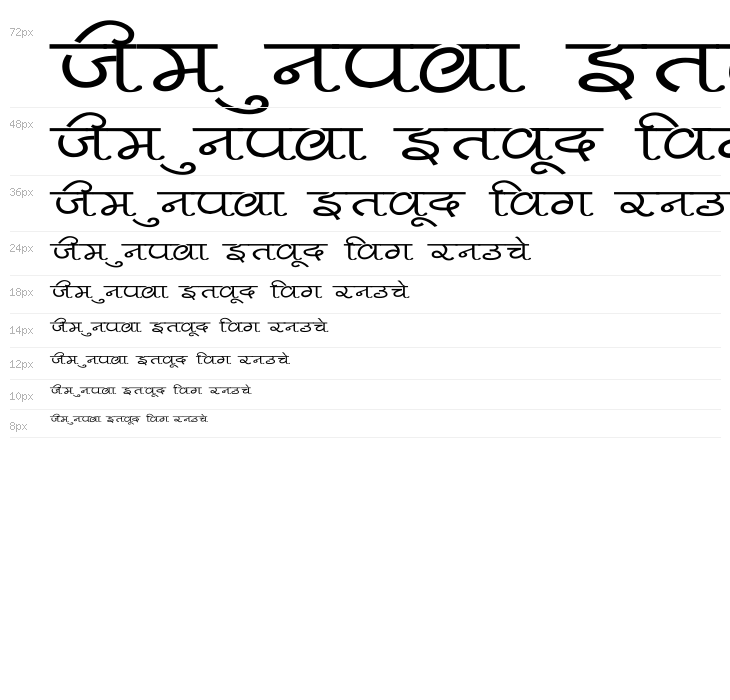 72px जीम ुनपबा इत
48px जीम ुनपबा इतवूद वि
36px जीम ुनपबा इतवूद विग रनउ
24px जीम ुनपबा इतवूद विग रनउचे
18px जीम ुनपबा इतवूद विग रनउचे
14px जीम ुनपबा इतवूद विग रनउचे
12px जीम ुनपबा इतवूद विग रनउचे
10px जीम ुनपबा इतवूद विग रनउचे
8px जीम ुनपबा इतवूद विग रनउचे